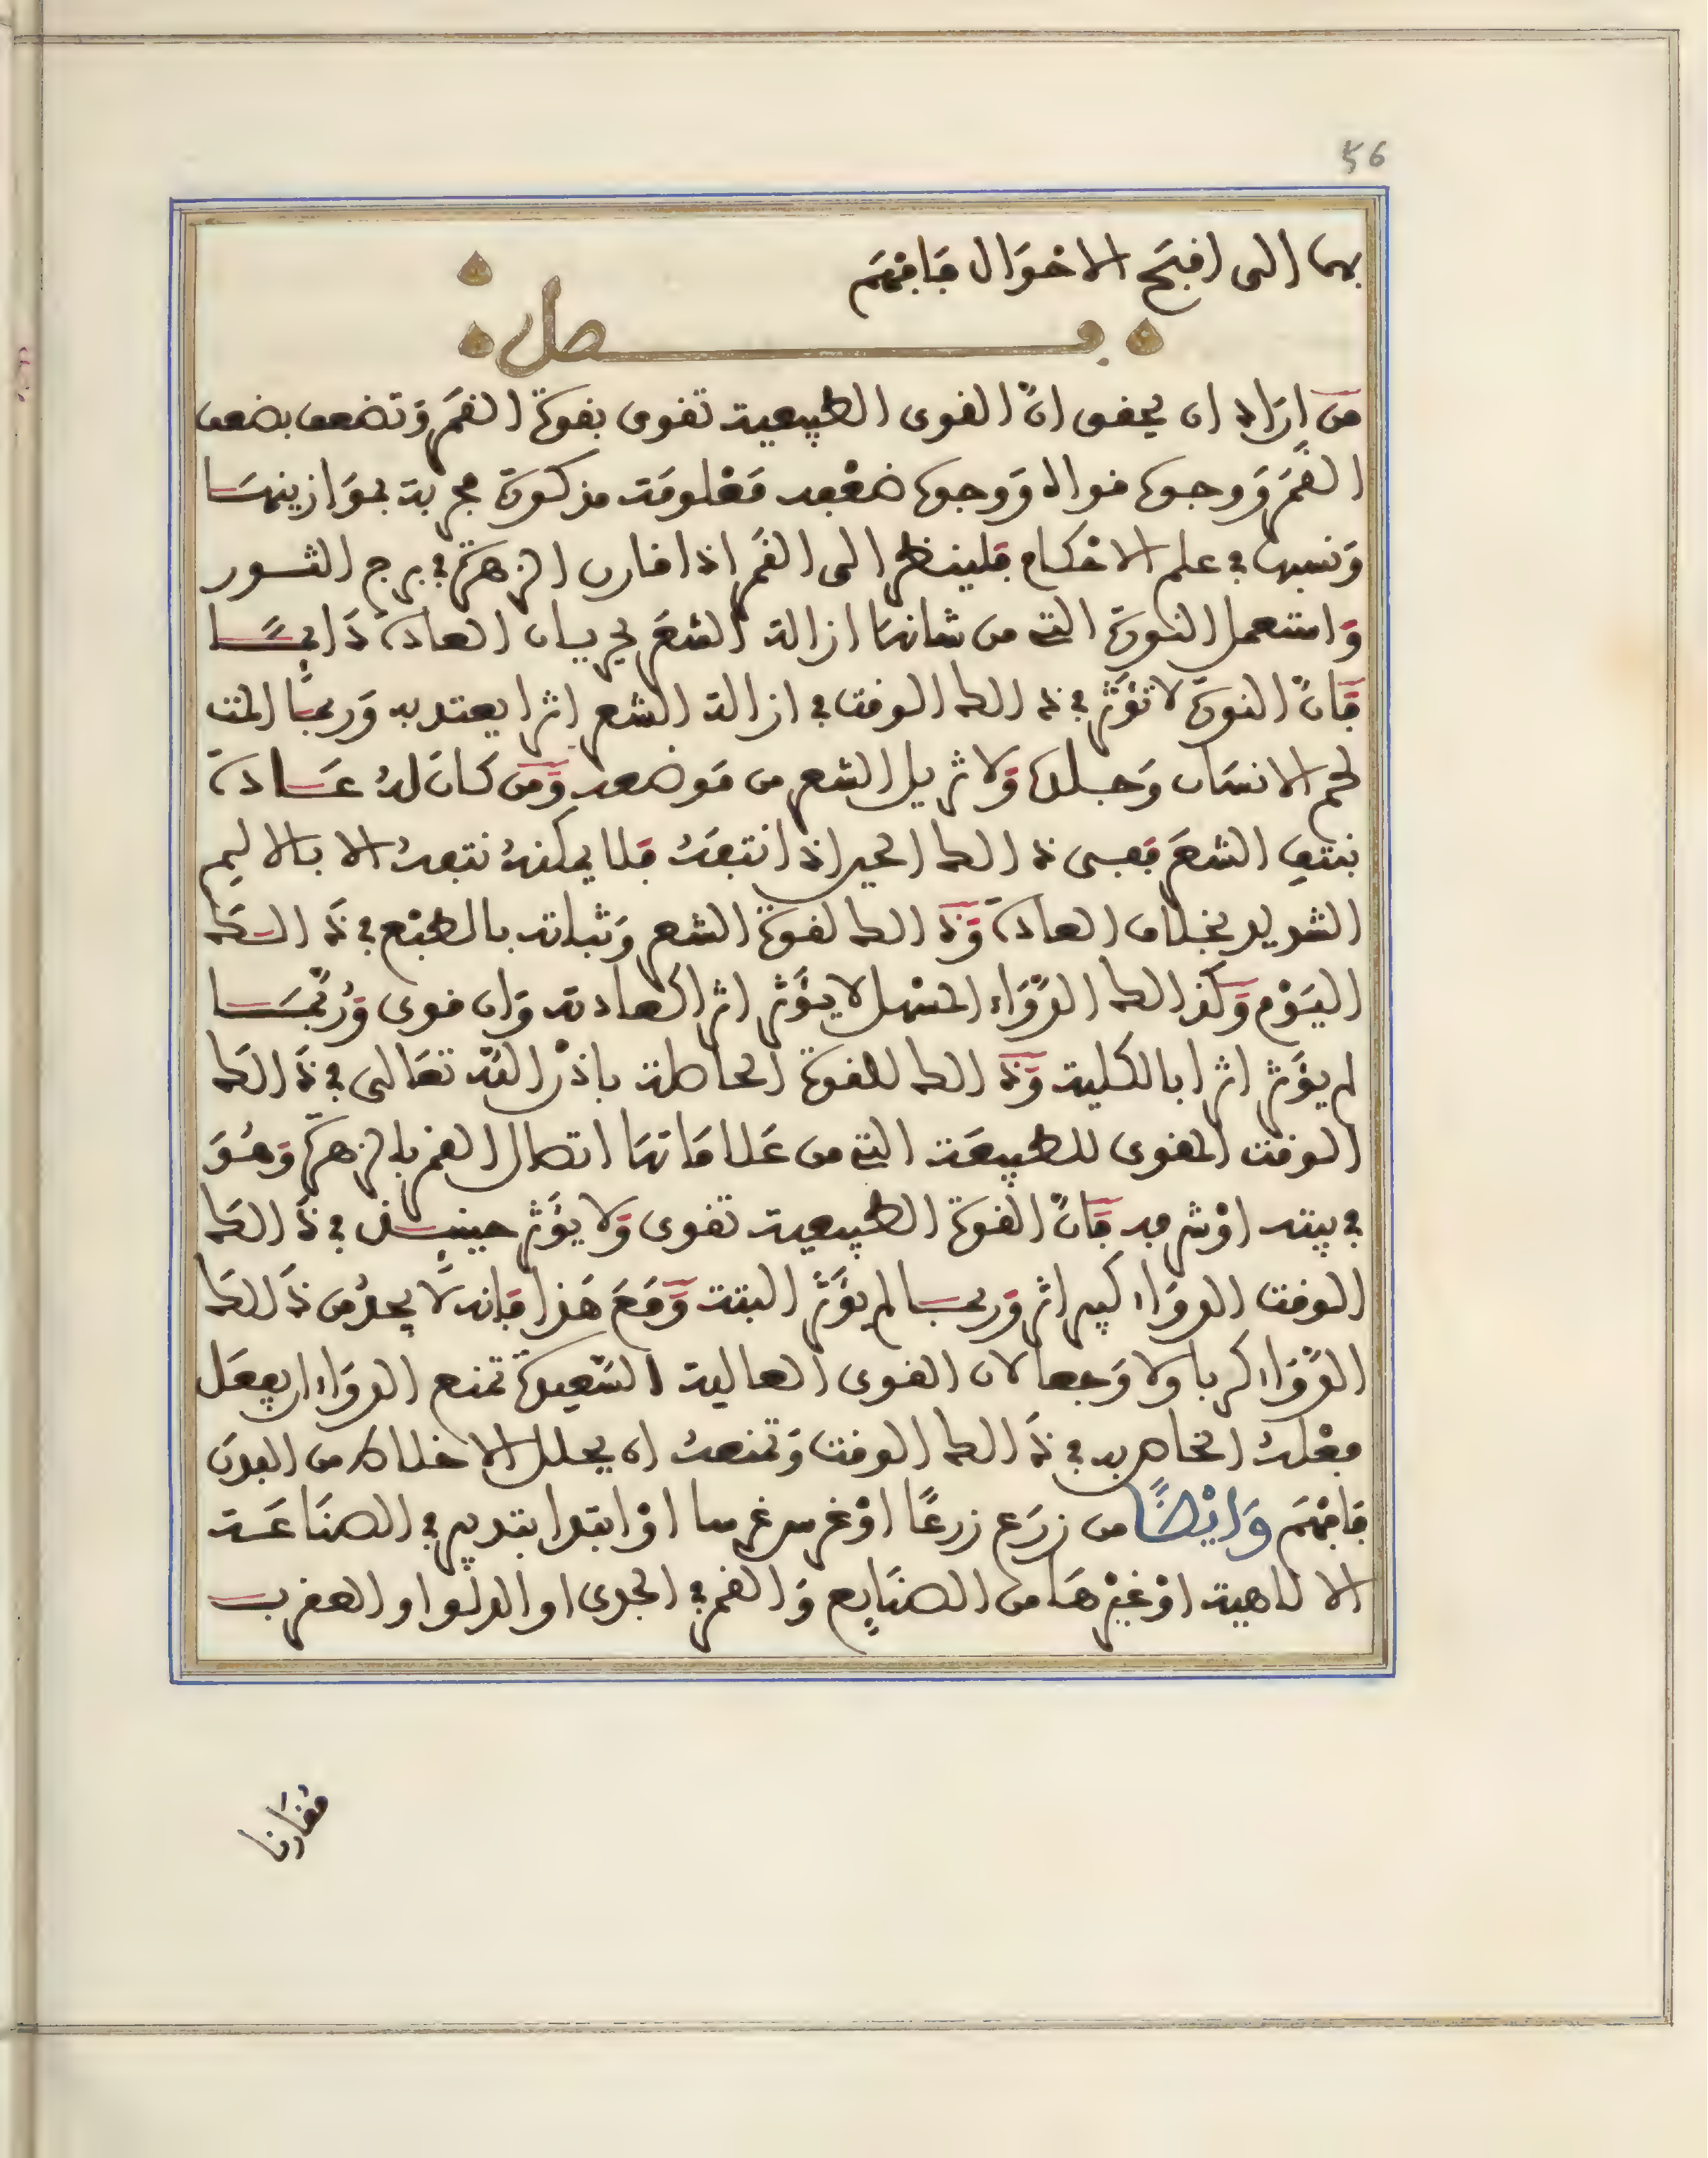 56
بها الى اقبَح الاحْوَال فَافْهَم
فصل
مَن ارَاد ان يحقق انَّ القوى الطبيعية تقوى بقوة القمَر وَتضعف بضعف
القمَر وَوجوه قواه وَوجوه ضعْفه مَعْلومَة مذكورة مجربة بموَازينهَا
وَنسبها في علم الاحْكام فلينظر الى القمَر اذا قارن الزهرة في برج الثور
وَاستعمل النورة التي من شانهَا ازالة الشعَر بجريان العادة دَايمًا
فَانَّ النورة لا تؤثر في ذالك الوقت في ازالة الشعر اثرا يعتد به وَربمَا المت
لحم الانسَان وَجلده وَلا تزيل الشعر من مَوضعه وَمَن كانَ لهُ عَادة
بنتف الشعَر ففى ذالك الحين اذا نتفَهُ فلا يمكنهُ نتفهُ الا بالاليم
الشديد بخلاف العادة وَذالك لقوة الشعر وَثباته بالطبْع في ذالك
اليَوْم وَكذالك الدّوَاء المسْهل لا يؤَثر اثر العادته وَان قوى وَرُبّمَا
لم يؤَثر اثرا بالكلية وَذالك للقوة الحاصلة باذْن اللّه تعَالى في ذَالك
الوقت المقوى للطبيعَة التي من عَلامَاتهَا اتصال القمر بالزهرة وَهُوَ
في بيته اوْ شرفه فَانَّ القوة الطبيعية تقوى وَلا يؤَثر حينيذ في ذَالك
الوقت الدوَاء كبير اثر وَربما لم يؤَثر البتة وَمَعَ هَذا فَانه لَا يجدُ من ذَالك
الدّوَاء كربا وَلا وَجعا لان القوى العالية السّعيدة تمنع الدوَاء ان يفعَل
فعْلهُ الخاص به في ذَالك الوقت وَتمنعهُ ان يحلل الاخلاط من البدَن
فَافْهَم وَايْضًا من زرَع زرعًا اوْ غرس غرسا اوْ ابتدا بتدبير في الصنَاعَة
الالاهية اوْ غيْرهَا من الصنَايع وَالقمر في الجدى او الدلو او العقرب
مُقَارنا